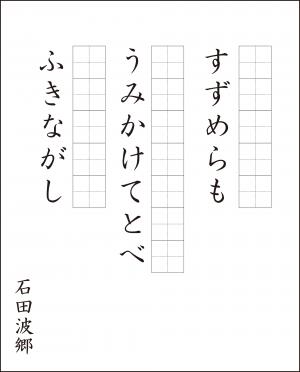 すずめらも
うみかけてとべ
ふきながし
石田波郷